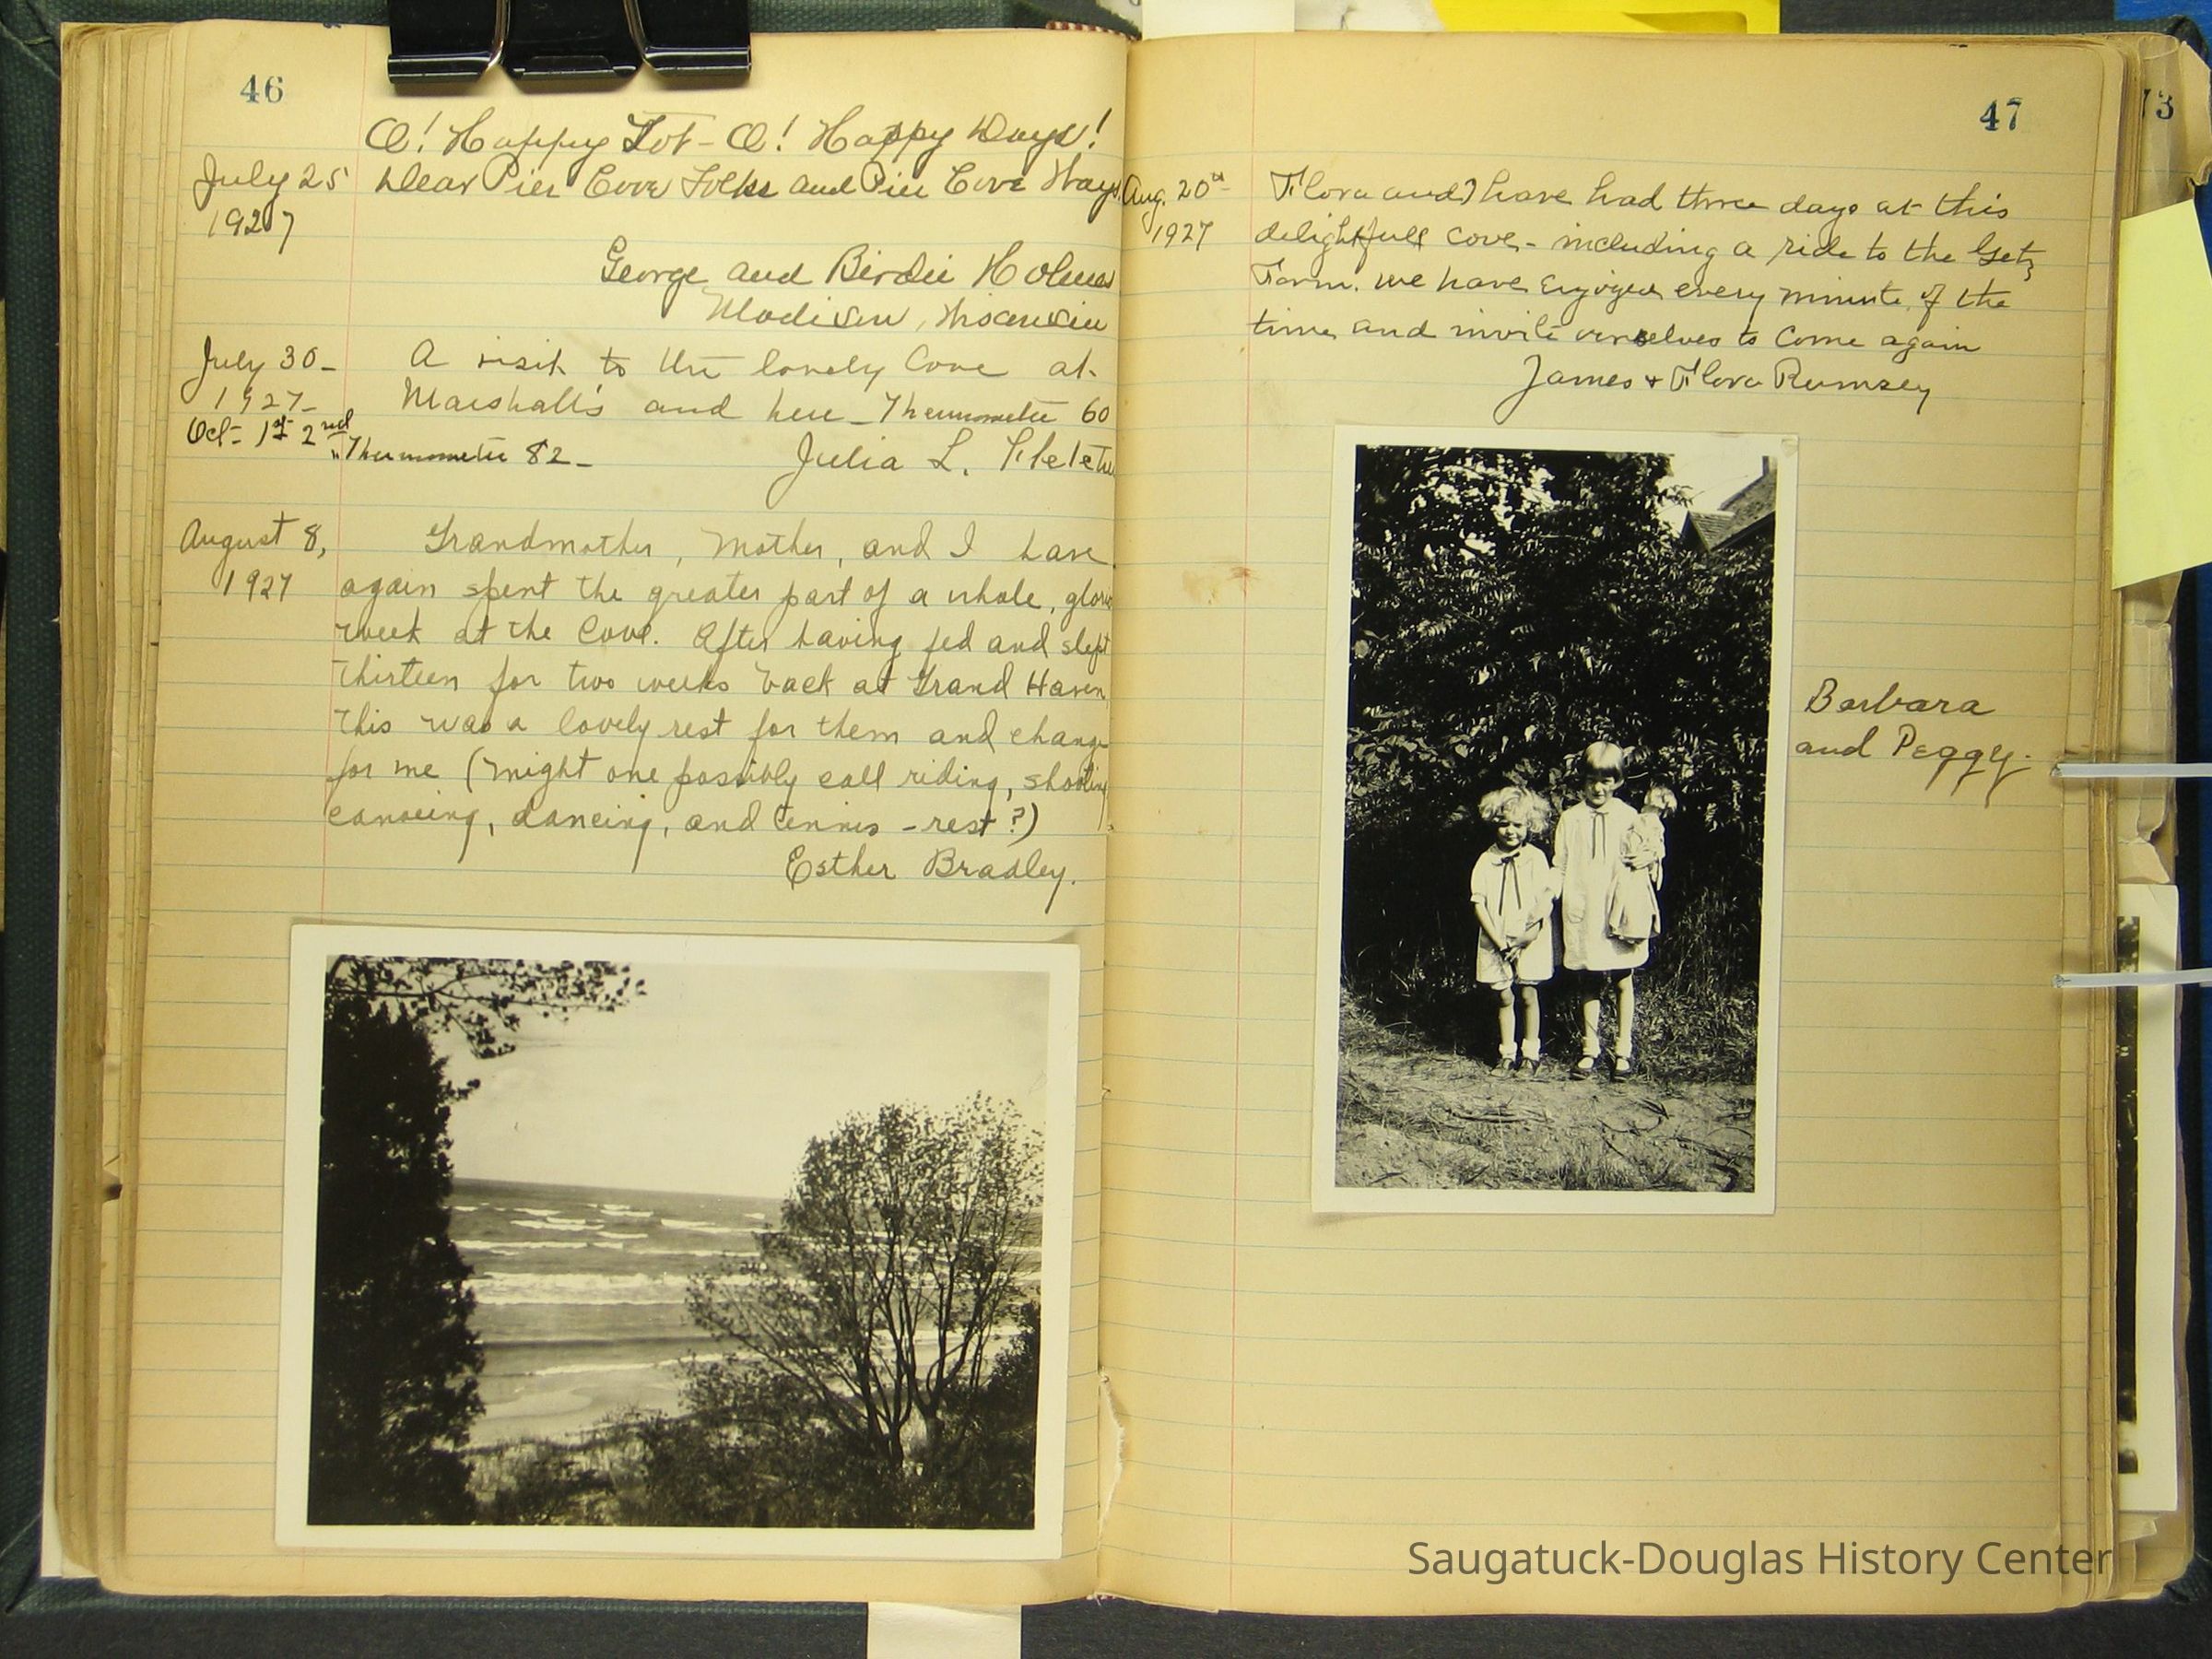 46
O! Happy Lot - O! Happy Days!
July 25
1927
Dear Pier Cove Folks and Pier Cove Ways
George and Birdie Holmes
Madison, Wisconsin
July 30-
1927-
A visit to the lovely Cove at
Marshall's and here - Thermometer 60
Oct- 1st 2nd
" Thermometer 82-
Julia L.
August 8,
1927
Grandmother, Mother, and I have
again spent the greater part of a whole,
week at the Cove. After having fed and slept
thirteen for two weeks back at Grand Haven
this was a lovely rest for them and change
for me (might one possibly call riding, shooting,
canoeing, dancing, and tennis - rest?)
Esther Bradley.
47
Aug. 20th
1927
Flora and I have had three days at this
delightfull cove - including a ride to the Getz
Farm. we have enjoyed every minute of the
time and invite ourselves to come again
James + Flora Rumsey
Barbara
and Peggy.
73
Saugatuck-Douglas History Center